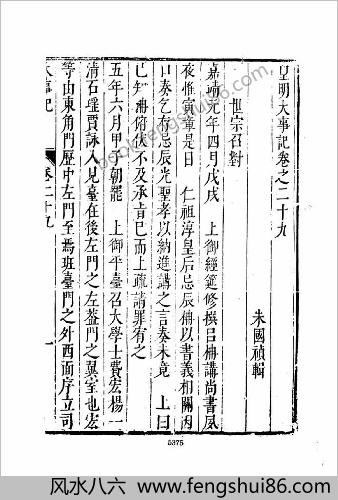 皇明大事記卷之二十九
朱國禎輯
世宗召對
嘉靖元年四月戊戌 上御經筵修撰呂柟講尚書夙
夜惟寅章是日 仁祖淳皇后忌辰柟以書義相關因
口奏乞存忌辰光聖孝以納進講之言奏未竟 上曰
已知柟俯伏不及承旨已而上疏請罪宥之
五年六月甲 朝罷 上御平臺召大學士費宏楊一
清石珤賈詠入見臺在後左門之左蓋門之翼室也宏
等由東角門歷中左門至焉班臺門之外西面序立司
大事記
卷二十九
一
5375
book.fengshui86.com
风水八六 www.fengshui86.com